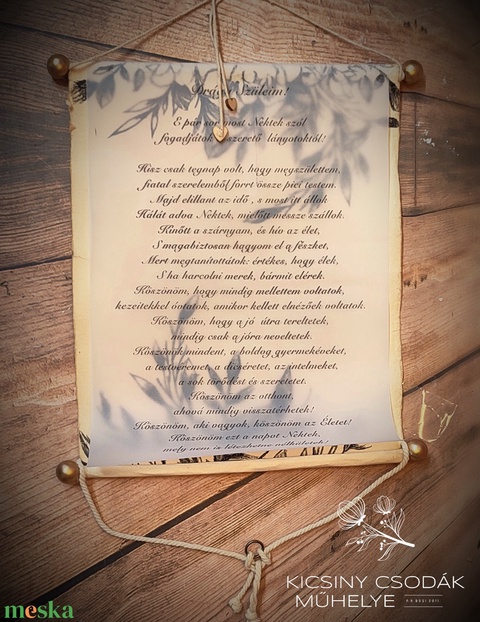 Drága Szüleim!
E pár sor most Néktek szól
fogadjátok szerető lányotoktól!
Hisz csak tegnap volt, hogy megszülettem,
fiatal szerelemből forrt össze pici testem.
Majd elillant az idő , s most itt állok
Hálát adva Néktek, mielőtt messze szállok.
Kinőtt a szárnyam, és hív az élet,
S magabiztosan hagyom el a fészket,
Mert megtanítottátok: értékes, hogy élek,
S ha harcolni merek, bármit elérek.
Köszönöm, hogy mindig mellettem voltatok,
kezeitekkel óvtatok, amikor kellett elnézőek voltatok.
Köszönöm, hogy a jó útra tereltetek,
mindig csak a jóra neveltetek.
Köszönök mindent, a boldog gyermekéveket,
a testvéremet, a dicséretet, az intelmeket,
a sok törődést és szeretetet.
Köszönöm az otthont,
ahová mindig visszatérhetek!
Köszönöm, aki vagyok, köszönöm az Életet!
Köszönöm ezt a napot Néktek,
mely nem is létezhetne nélkületek!
KICSINY CSODÁK
MŰHELYE
meska